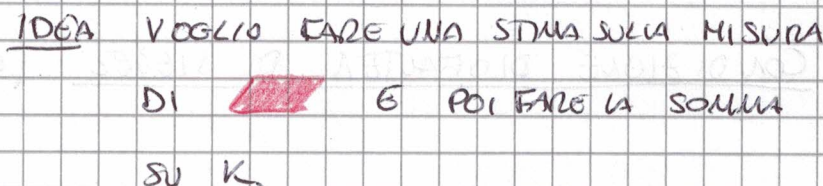 IDEA VOGLIO FARE UNA STIMA SULLA MISURA
DI E POI FARE LA SOMMA
SU K